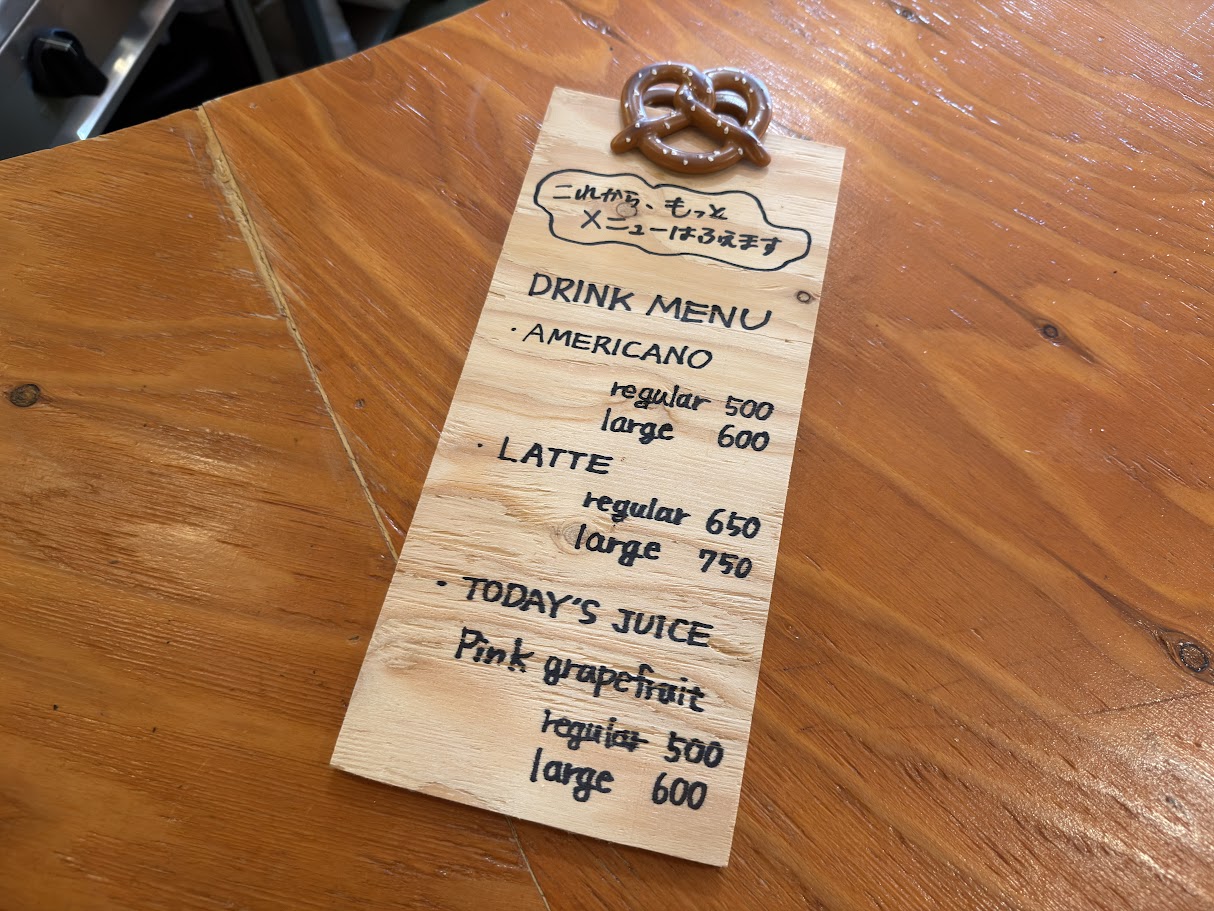 これから、もっと
メニューはふえます
DRINK MENU
・AMERICANO
regular 500
large 600
・LATTE
regular 650
large 750
・TODAY'S JUICE
Pink grapefruit
regular 500
large 600